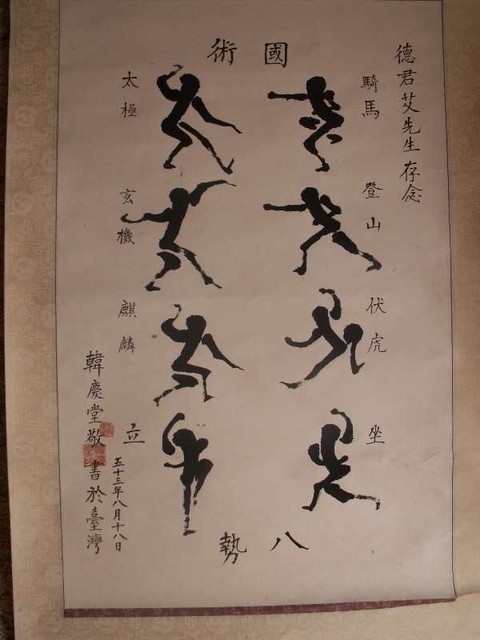 德君艾先生存念
國術
騎馬
登山
伏虎
坐
太極
玄機
麒麟
立
八勢
五十三年八月十八日
韓慶堂敬書於臺灣